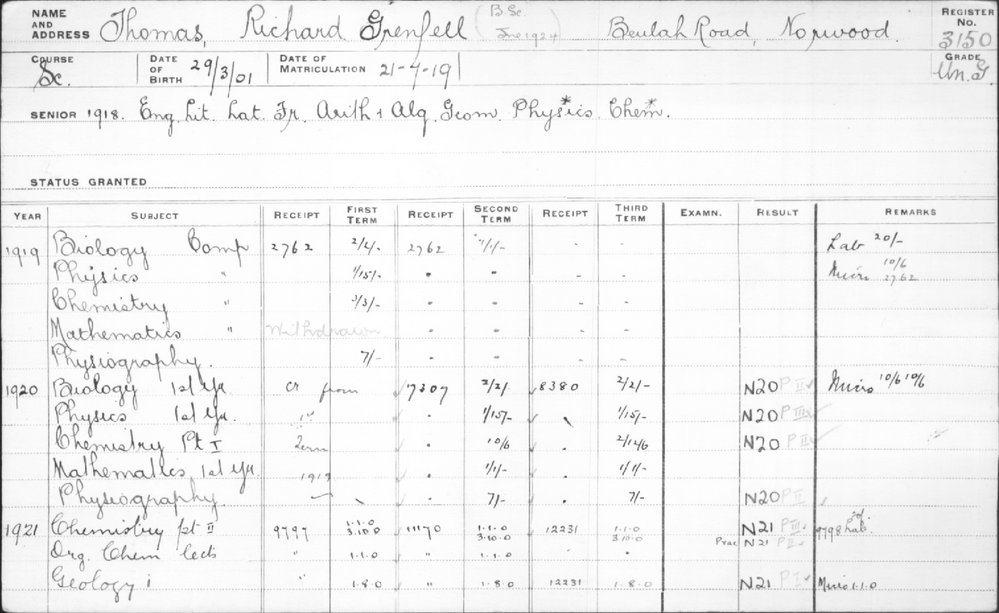 NAME AND ADDRESS Thomas, Richard Grenfell (B Sc. Dec 1924) Beulah Road, Norwood. REGISTER No. 3150
COURSE Sc. DATE OF BIRTH 29/3/01 DATE OF MATRICULATION 21-4-19 GRADE Un. G
SENIOR 1918. Eng. Lit. Lat. Fr. Arith + Alg. Geom. Physics* Chem*.
STATUS GRANTED
YEAR SUBJECT RECEIPT FIRST TERM RECEIPT SECOND TERM RECEIPT THIRD TERM EXAMN. RESULT REMARKS
1919 Biology Comp 2762 2/2/- 2762 - - Lab 20/-
Physics " 1/15/- - " - - Micro 10/6 2762
Chemistry " 3/3/- - " - -
Mathematics " Withdrawn - " - -
Physiography. 7/- - " - -
1920 Biology 1st Yr. cr from 7307 2/2/- 8380 2/2/- N20 P II Micro 10/6 10/6
Physics 1st Yr. 1st 1/15/- 1/15/- N20 P III
Chemistry Pt I Term 10/6 2/12/6 N20 P II
Mathematics 1st Yr. 1919 1/1/- 1/1/-
Physiography 7/- 7/- N20 P II
1921 Chemistry pt II 9797 1.1.0 3.10.0 11170 1.1.0 3.10.0 12231 1.1.0 3.10.0 N21 P III 9798 Lab.
Prac N21 P II
Org. Chem lects " 1.1.0 " 1.1.0 " "
Geology 1 " 1.8.0 " 1.8.0 12231 1.8.0 N21 P I Micro 1.1.0